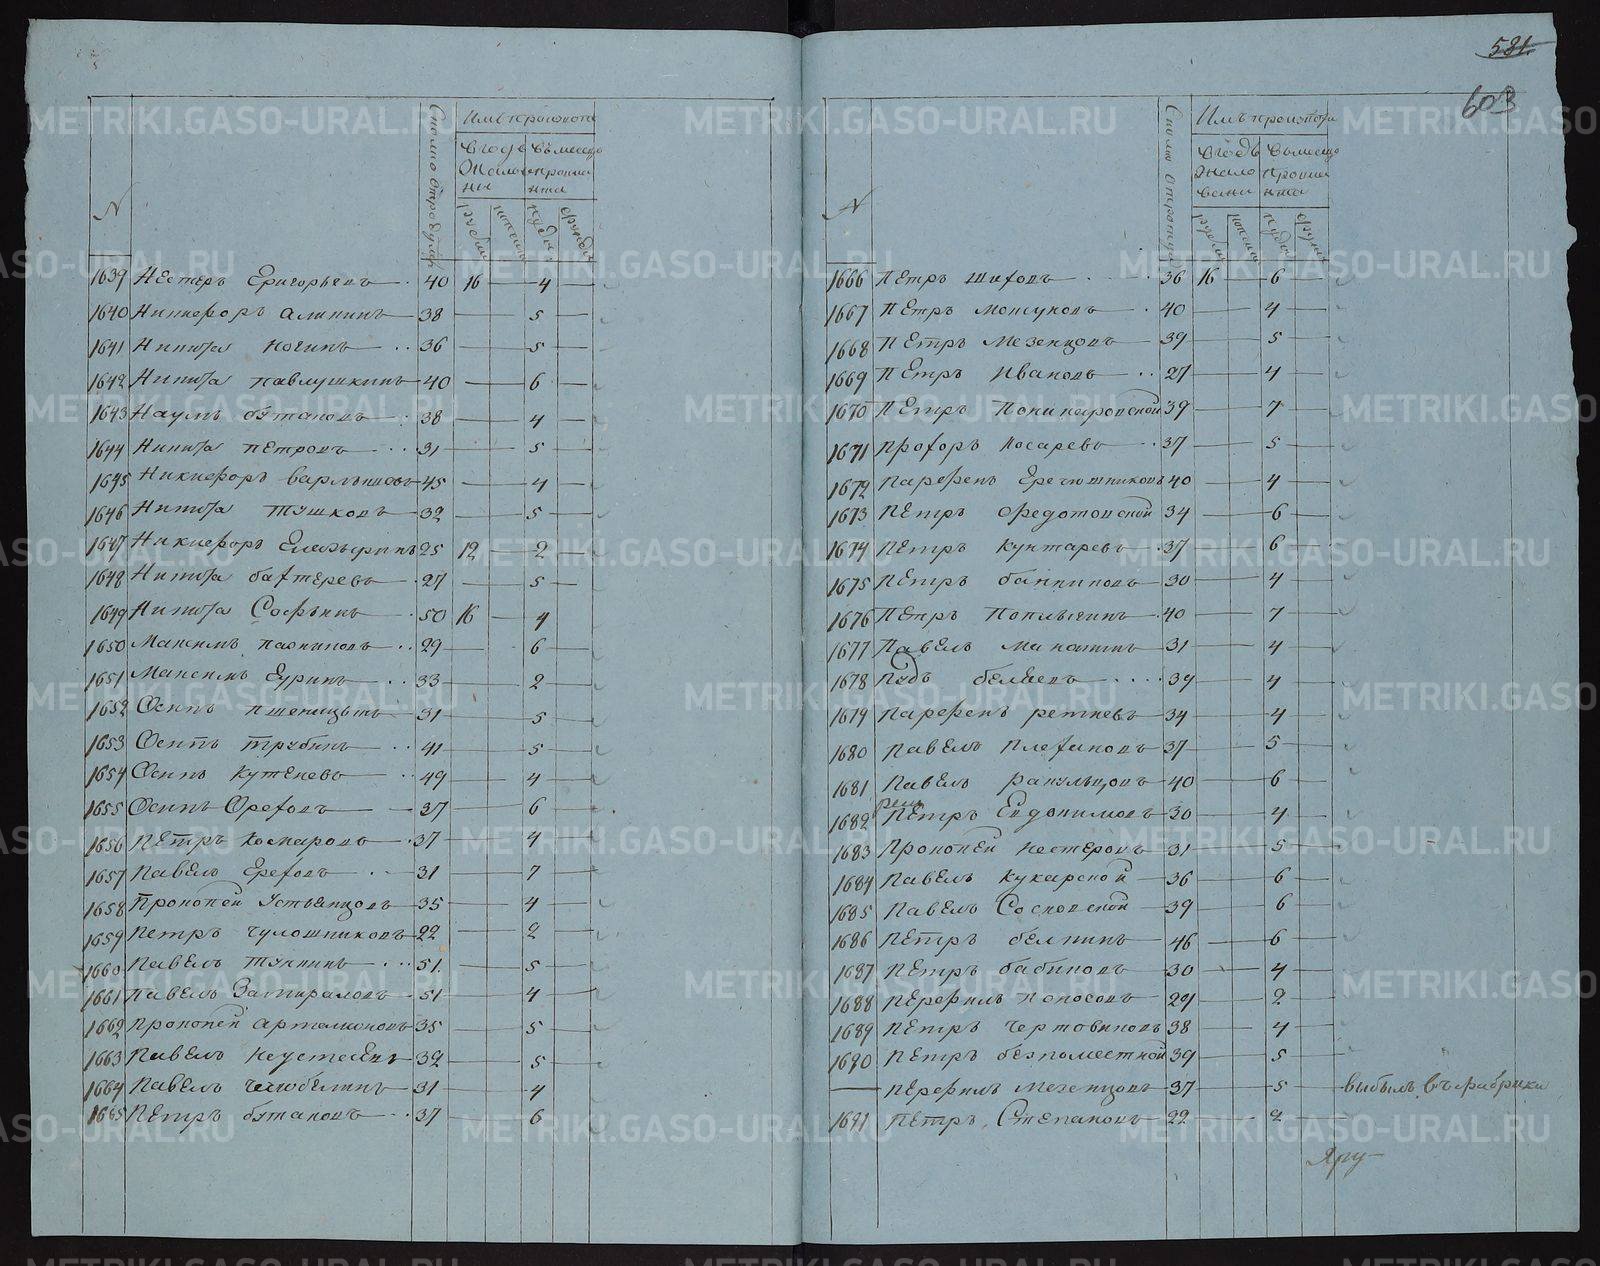 581.
603
Имъ производи
в годъ
жалованья
въ месецъ
провианта
рубли
копеики
пуды
фунды
№
1639 Нестеръ Григорьевъ 40 16 4
1640 Никифоръ Аликинъ 38 5
1641 Никита Ногинъ 36 5
1642 Никита Павлушкинъ 40 6
1643 Наумъ бутаковъ 38 4
1644 Никита Петровъ 31 5
1645 Никифоръ 45 4
1646 Никита Тушковъ 32 5
1647 Никифоръ 25 12 2
1648 Никита бахтеревъ 27 5
1649 Никита Софьинъ 50 16 4
1650 Максимъ 29 6
1651 Максимъ Гуринъ 33 2
1652 Осипъ 31 5
1653 Осипъ Трубинъ 41 5
1654 Осипъ Кутеневъ 49 4
1655 Осипъ Ореховъ 37 6
1656 Петръ Комаровъ 37 4
1657 Павелъ Ереховъ 31 7
1658 Прокопей Устьянцовъ 35 4
1659 Петръ Чулошниковъ 22 2
1660 Павелъ Тункинъ 51 5
1661 Павелъ Замираловъ 51 4
1662 Прокопей Артамоновъ 35 5
1663 Павелъ Неустоевъ 32 5
1664 Павелъ 31 4
1665 Петръ бутаковъ 37 6
Имъ производи
в годъ
жало
вани
в месецъ
провиа
нта
рубли
копеики
пуды
фунды
№
1666 Петръ Шиховъ 36 16 6
1667 Петръ Мокуновъ 40 4
1668 Петръ Мезенцовъ 39 5
1669 Петръ Ивановъ 27 4
1670 Петръ 39 7
1671 Прохоръ Косаревъ 37 5
1672 Парфенъ Гречюшниковъ 40 4
1673 Петръ Федотовской 34 6
1674 Петръ Кунгаревъ 37 6
1675 Петръ банниковъ 30 4
1676 Петръ Поклысинъ 40 7
1677 Павелъ 31 4
1678 Пудъ беляевъ 39 4
1679 Парфенъ Ретневъ 34 4
1680 Павелъ Плехановъ 37 5
1681 Павелъ Ракульцовъ 40 6
1682 Петръ Евдокимовъ 30 4
1683 Прокопей Нестеровъ 31 5
1684 Павелъ Кукарской 36 6
1685 Павелъ Сосновской 39 6
1686 Петръ белкинъ 46 6
1687 Петръ бабиковъ 30 4
1688 Перфилъ Кокосовъ 29 2
1689 Петръ Чертовиковъ 38 4
1690 Петръ безпоместной 39 5
Перфилъ Мезенцовъ 37 5 выбылъ въ фабрики
1691 Петръ Степановъ 22 2